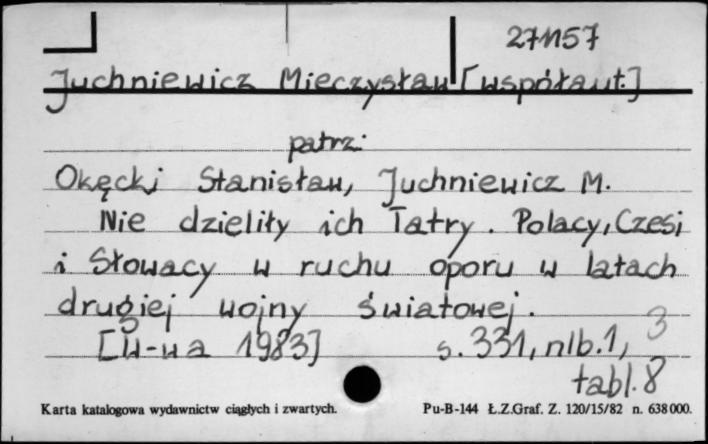 271157
Juchniewicz Mieczysław [współaut.]
patrz:
Okęcki Stanisław, Juchniewicz M.
Nie dzieliły ich Tatry. Polacy, Czesi
i Słowacy w ruchu oporu w latach
drugiej wojny światowej.
[W-wa 1983] s. 331, nlb. 1, 3
tabl. 8
Karta katalogowa wydawnictw ciągłych i zwartych. Pu-B-144 Ł.Z.Graf. Z. 120/15/82 n. 638000.